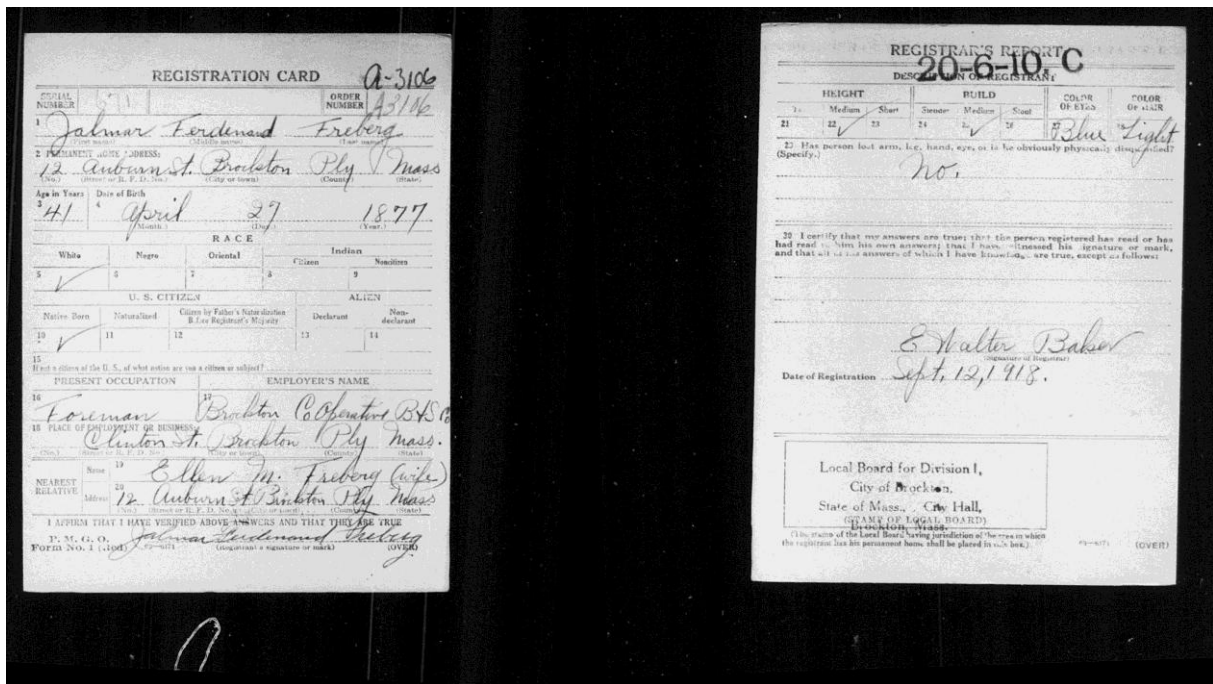 REGISTRATION CARD A-3106
SERIAL NUMBER 671 ORDER NUMBER A3106
1 Jalmar Ferdenand Freberg
(First name) (Middle name) (Last name)
2 PERMANENT HOME ADDRESS:
12 Auburn St. Brockton Ply Mass
(No.) (Street or R. F. D. No.) (City or town) (County) (State)
Age in Years Date of Birth
3 41 4 April 27 1877
(Month.) (Day.) (Year.)
RACE
White Negro Oriental Indian
Citizen Noncitizen
5 ✓ 6 7 8 9
U. S. CITIZEN ALIEN
Native Born Naturalized Citizen by Father's Naturalization Before Registrant's Majority Declarant Non-declarant
10 ✓ 11 12 13 14
15
If not a citizen of the U. S., of what nation are you a citizen or subject?
PRESENT OCCUPATION EMPLOYER'S NAME
16 Foreman 17 Brockton CoOperative B&S Co
18 PLACE OF EMPLOYMENT OR BUSINESS:
Clinton St. Brockton Ply Mass.
(No.) (Street or R. F. D. No.) (City or town) (County) (State)
NEAREST RELATIVE Name 19 Ellen M. Freberg (wife)
Address 20 12 Auburn St Brockton Ply Mass
(No.) (Street or R. F. D. No.) (City or town) (County) (State)
I AFFIRM THAT I HAVE VERIFIED ABOVE ANSWERS AND THAT THEY ARE TRUE
P. M. G. O.
Form No. 1 (Red) Jalmar Ferdenand Freberg
(Registrant's signature or mark) (OVER)
REGISTRAR'S REPORT
20-6-10-C
DESCRIPTION OF REGISTRANT
HEIGHT BUILD COLOR OF EYES COLOR OF HAIR
Tall Medium Short Slender Medium Stout
21 22 ✓ 23 24 25 ✓ 26 27 Blue 28 Light
29 Has person lost arm, leg, hand, eye, or is he obviously physically disqualified?
(Specify.)
No.
30 I certify that my answers are true; that the person registered has read or has
had read to him his own answers; that I have witnessed his signature or mark,
and that all of his answers of which I have knowledge are true, except as follows:
E Walter Baker
(Signature of Registrar)
Date of Registration Sept. 12, 1918.
Local Board for Division 1,
City of Brockton,
State of Mass., City Hall,
(STAMP OF LOCAL BOARD)
Brockton, Mass.
(The stamp of the Local Board having jurisdiction of the area in which
the registrant has his permanent home shall be placed in this box.)
(OVER)